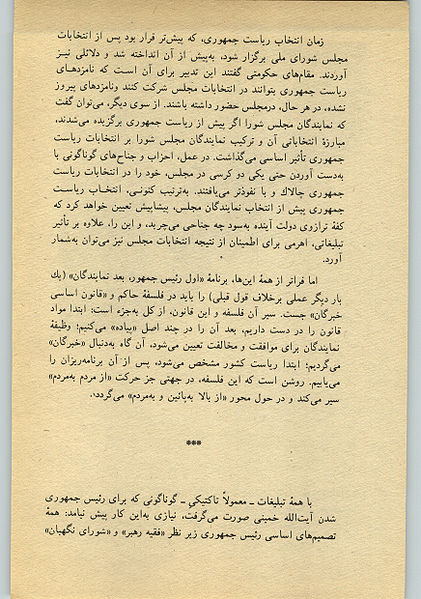 زمان انتخاب ریاست جمهوری، که پیش‌تر قرار بود پس از انتخابات
مجلس شورای ملی برگزار شود، به‌پیش از آن انداخته شد و دلائلی نیـز
آوردند. مقام‌های حکومتی گفتند این تدبیر برای آن اسـت که نامزدهـای
ریاست جمهوری بتوانند در انتخابات مجلس شرکت کنند ونامزدهای پیروز
نشده، در هر حال، درمجلس حضور داشته باشند. از سوی دیگر، می‌توان گفت
که نمایندگان مجلس شورا اگر پیش از ریاست جمهوری برگزیده می‌شدند،
مبارزهٔ انتخاباتی آن و ترکیب نمایندگان مجلس شورا بر انتخابات ریاست
جمهوری تأثیر اساسی می‌گذاشت. در عمل، احزاب و جناح‌های گوناگونی با
به‌دست آوردن حتی یکی دو کرسی در مجلس، خود را در انتخابات ریاست
جمهوری چالاك و با نفوذتر می‌یافتند. به‌ترتیب کنونـی، انتخـاب ریاسـت
جمهوری پیش از انتخاب نمایندگان مجلس، پیشاپیش تعیین خواهد کرد که
کفهٔ ترازوی دولت آینده به‌سود چه جناحی می‌چربد، و این را، علاوه بر تأثیر
تبلیغاتی، اهرمی برای اطمینان از نتیجه انتخابات مجلس نیز می‌توان به‌شمار
آورد.
اما فراتر از همهٔ این‌ها، برنامهٔ «اول رئیس جمهور، بعد نمایندگان» (یك
بار دیگر عملی برخلاف قول قبلی) را باید در فلسفهٔ حاکم و «قانون اساسی
خبرگان» جست. سیر آن فلسفه و این قانون، از کل به‌جزء است: ابتدا مواد
قانون را در دست داریم، بعد آن را در چند اصل «پیاده» می‌کنیم؛ وظیفهٔ
نمایندگان برای موافقت و مخالفت تعیین می‌شود، آن گاه به‌دنبال «خبرگان»
می‌گردیم؛ ابتدا ریاست کشور مشخص می‌شود، پس از آن برنامه‌ریزان را
می‌یابیم. روشن است که این فلسفه، در جهتی جز حرکت «از مردم به‌مردم»
سیر می‌کند و در حول محور «از بالا به‌پائین و به‌مردم» می‌گردد.
***
با همهٔ تبلیغات ـ معمولاً تاکتیکی ـ گوناگونی که برای رئیس جمهوری
شدن آیت‌الله خمینی صورت می‌گرفت، نیازی به‌این کار پیش نیامد: همهٔ
تصمیم‌های اساسی رئیس جمهوری زیر نظر «فقیه رهبر» و «شورای نگهبان»